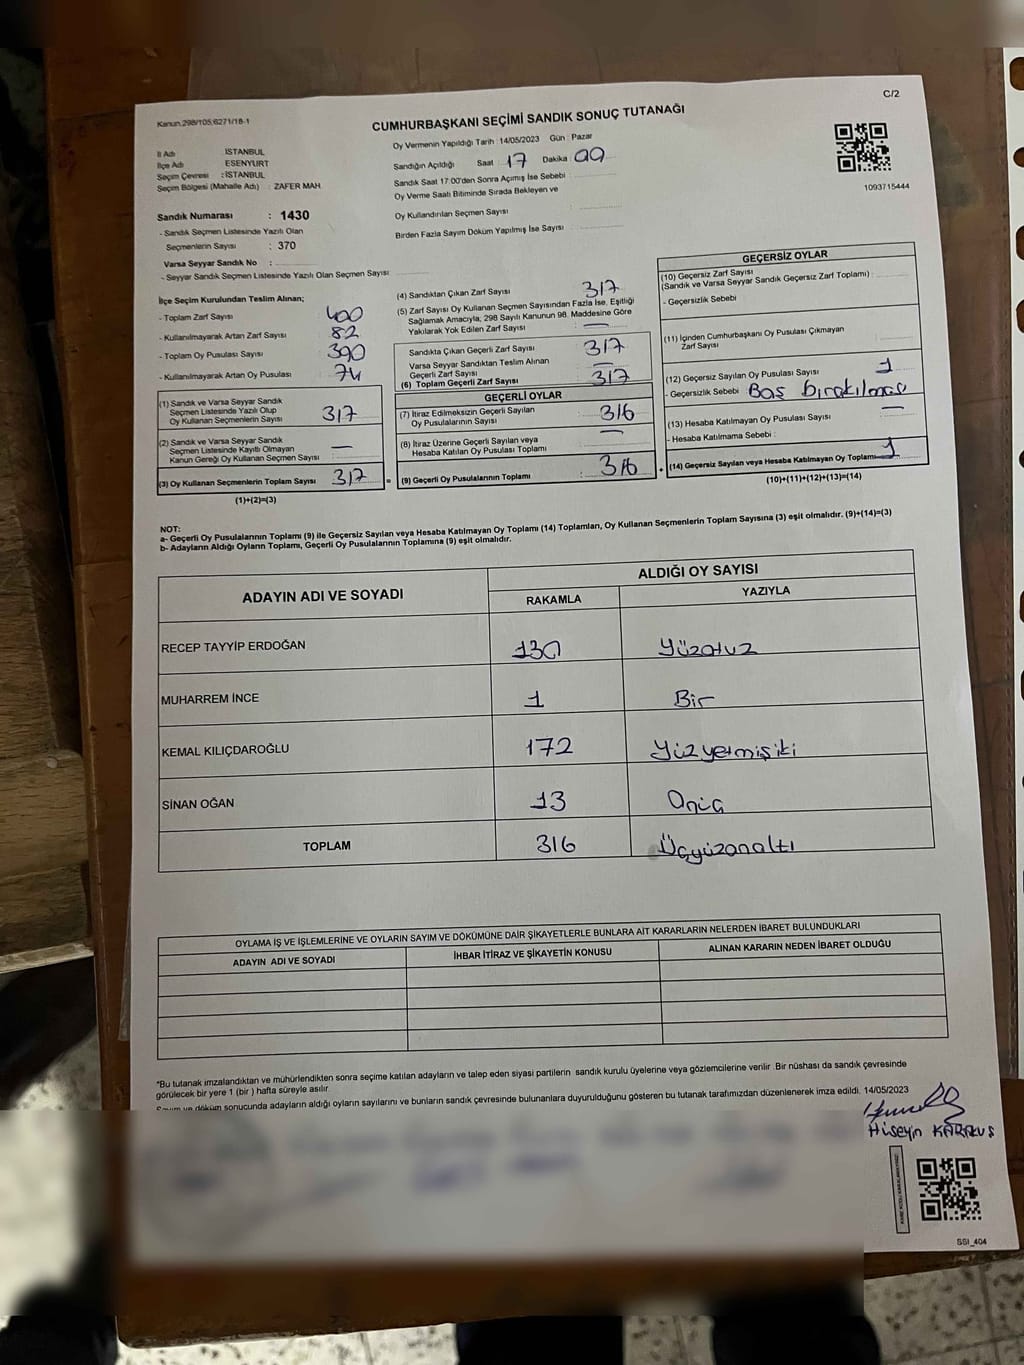 C/2
Kanun.298/105;6271/18-1
CUMHURBAŞKANI SEÇİMİ SANDIK SONUÇ TUTANAĞI
Oy Vermenin Yapıldığı Tarih :14/05/2023 Gün : Pazar
İl Adı İSTANBUL
İlçe Adı ESENYURT
Seçim Çevresi : İSTANBUL
Seçim Bölgesi (Mahalle Adı) : ZAFER MAH.
Sandığın Açıldığı Saat 17 Dakika 00
Sandık Saat 17:00'den Sonra Açımış İse Sebebi :
Oy Verme Saati Bitiminde Sırada Bekleyen ve
Oy Kullandırılan Seçmen Sayısı :
Birden Fazla Sayım Döküm Yapılmış İse Sayısı :
1093715444
Sandık Numarası : 1430
- Sandık Seçmen Listesinde Yazılı Olan
Seçmenlerin Sayısı : 370
Varsa Seyyar Sandık No :
- Seyyar Sandık Seçmen Listesinde Yazılı Olan Seçmen Sayısı :
İlçe Seçim Kurulundan Teslim Alınan;
- Toplam Zarf Sayısı : 400
- Kullanılmayarak Artan Zarf Sayısı : 82
- Toplam Oy Pusulası Sayısı : 390
- Kullanılmayarak Artan Oy Pusulası : 74
(1) Sandık ve Varsa Seyyar Sandık
Seçmen Listesinde Yazılı Olup
Oy Kullanan Seçmenlerin Sayısı : 317
(2) Sandık ve Varsa Seyyar Sandık
Seçmen Listesinde Kayıtlı Olmayan
Kanun Gereği Oy Kullanan Seçmen Sayısı : —
(3) Oy Kullanan Seçmenlerin Toplam Sayısı : 317
(1)+(2)=(3)
(4) Sandıktan Çıkan Zarf Sayısı : 317
(5) Zarf Sayısı Oy Kullanan Seçmen Sayısından Fazla İse, Eşitliği
Sağlamak Amacıyla, 298 Sayılı Kanunun 98. Maddesine Göre
Yakılarak Yok Edilen Zarf Sayısı : —
Sandıkta Çıkan Geçerli Zarf Sayısı : 317
Varsa Seyyar Sandıktan Teslim Alınan
Geçerli Zarf Sayısı : —
(6) Toplam Geçerli Zarf Sayısı : 317
GEÇERLİ OYLAR
(7) İtiraz Edilmeksizin Geçerli Sayılan
Oy Pusulasının Sayısı : 316
(8) İtiraz Üzerine Geçerli Sayılan veya
Hesaba Katılan Oy Pusulası Toplamı : —
= (9) Geçerli Oy Pusulalarının Toplamı : 316
GEÇERSİZ OYLAR
(10) Geçersiz Zarf Sayısı
(Sandık ve Varsa Seyyar Sandık Geçersiz Zarf Toplamı) :
- Geçersizlik Sebebi :
(11) İçinden Cumhurbaşkanı Oy Pusulası Çıkmayan
Zarf Sayısı :
(12) Geçersiz Sayılan Oy Pusulası Sayısı : 1
- Geçersizlik Sebebi : Boş bırakılması
(13) Hesaba Katılmayan Oy Pusulası Sayısı : —
- Hesaba Katılmama Sebebi :
+ (14) Geçersiz Sayılan veya Hesaba Katılmayan Oy Toplamı : 1
(10)+(11)+(12)+(13)=(14)
NOT:
a- Geçerli Oy Pusulalarının Toplamı (9) ile Geçersiz Sayılan veya Hesaba Katılmayan Oy Toplamı (14) Toplamları, Oy Kullanan Seçmenlerin Toplam Sayısına (3) eşit olmalıdır. (9)+(14)=(3)
b- Adayların Aldığı Oyların Toplamı, Geçerli Oy Pusulalarının Toplamına (9) eşit olmalıdır.
ADAYIN ADI VE SOYADI ALDIĞI OY SAYISI
RAKAMLA YAZIYLA
RECEP TAYYİP ERDOĞAN 130 Yüzotuz
MUHARREM İNCE 1 Bir
KEMAL KILIÇDAROĞLU 172 Yüzyetmişiki
SİNAN OĞAN 13 Onüç
TOPLAM 316 Üçyüzonaltı
OYLAMA İŞ VE İŞLEMLERİNE VE OYLARIN SAYIM VE DÖKÜMÜNE DAİR ŞİKAYETLERLE BUNLARA AİT KARARLARIN NELERDEN İBARET BULUNDUKLARI
ADAYIN ADI VE SOYADI İHBAR İTİRAZ VE ŞİKAYETİN KONUSU ALINAN KARARIN NEDEN İBARET OLDUĞU
*Bu tutanak imzalandıktan ve mühürlendikten sonra seçime katılan adayların ve talep eden siyasi partilerin sandık kurulu üyelerine veya gözlemcilerine verilir. Bir nüshası da sandık çevresinde
görülecek bir yere 1 (bir) hafta süreyle asılır.
Sayım ve döküm sonucunda adayların aldığı oyların sayılarını ve bunların sandık çevresinde bulunanlara duyurulduğunu gösteren bu tutanak tarafımızdan düzenlenerek imza edildi. 14/05/2023
Hüseyin KARAKUŞ
SSI_404